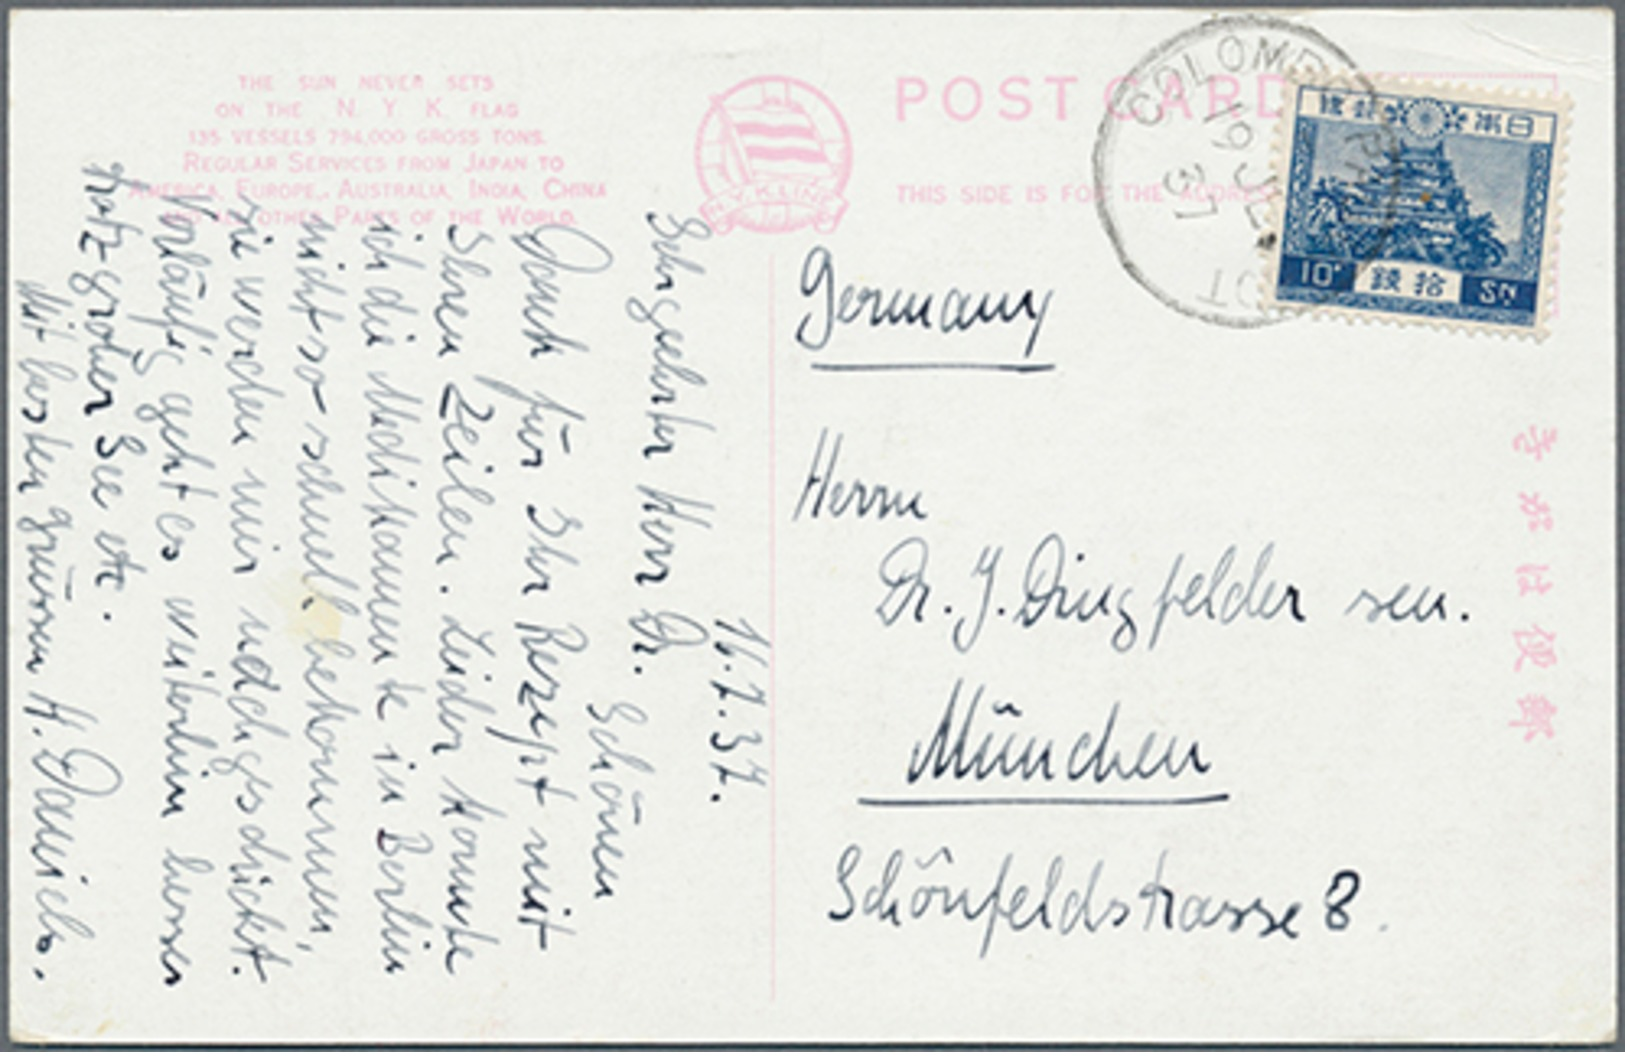 THE SUN NEVER SETS
ON THE N. Y. K. FLAG
135 VESSELS 794,000 GROSS TONS.
REGULAR SERVICES FROM JAPAN TO
AMERICA, EUROPE, AUSTRALIA, INDIA, CHINA
AND ALL OTHER PARTS OF THE WORLD.
N.Y.K. LINE
POST CARD
THIS SIDE IS FOR THE ADDRESS
COLOMBO
19 JL
37
日本 郵便
10 拾銭 SN
郵便はがき
Germany
Herrn
Dr. J. Dingfelder sen.
München
Schönfeldstrasse 8.
16.7.37.
Sehrgeehrter Herr Dr. Schönen
Dank für Ihr Rezept mit
Ihren Zeilen. Leider konnte
ich die Medikamente in Berlin
nicht so schnell bekommen,
sie werden mir nachgeschickt.
Vorläufig geht es weiterhin besser
trotz grober See etc.
Mit besten Grüssen H.